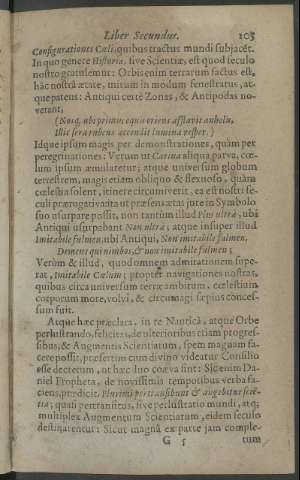 Liber Secundus. 105
Configurationes Cœli, quibus tractus mundi subjacēt.
In quo genere Historiæ, sive Scientiæ, est quod seculo
nostro gratulemur: Orbis enim terrarum factus est,
hâc nostrâ ætate, mirum in modum fenestratus, at-
que patens: Antiqui certè Zonas, & Antipodas no-
verant,
(Nosq, ubi primus equis oriens afflavit anhelis,
Illic sera rubens accendit lumina vesper.)
Idque ipsum magis per demonstrationes, quàm per
peregrinationes: Verùm ut Carina aliqua parva, cœ-
lum ipsum æmularetur; atque universum globum
terrestrem, magis etiam obliquo & flexuoso, quàm
cœlestia solent, itinere circumiverit, ea est nostri se-
culi prærogativa: ita ut præsens ætas jure in Symbolo
suo usurpare possit, non tantùm illud Plus ultrà, ubi
Antiqui usurpabant Non ultrà; atque insuper illud
Imitabile fulmen, ubi Antiqui, Non imitabile fulmen,
Demens qui nimbos, & non imitabile fulmen;
Verùm & illud, quod omnem admirationem supe-
rat, Imitabile Cœlum; propter navigationes nostras,
quibus circa universum terræ ambitum, cœlestium
corporum more, volvi, & circumagi sæpius conces-
sum fuit.
Atque hæc præclara, in re Nauticâ, atque Orbe
perlustrando, felicitas, de ulterioribus etiam progres-
sibus, & Augmentis Scientiarum, spem magnam fa-
cere possit, præsertim cum divino videatur Consilio
esse decretum, ut hæc duo coæva sint: Sic enim Da-
niel Propheta, de novissimis temporibus verba fa-
ciens, prædicit, Plurimi pertransibunt & augebitur scië-
tia; quasi pertransitus, sive perlustratio mundi, atq;
multiplex Augmentum Scientiarum, eidem seculo
destinarentur: Sicut magnâ ex parte jam comple-
G 5 tum